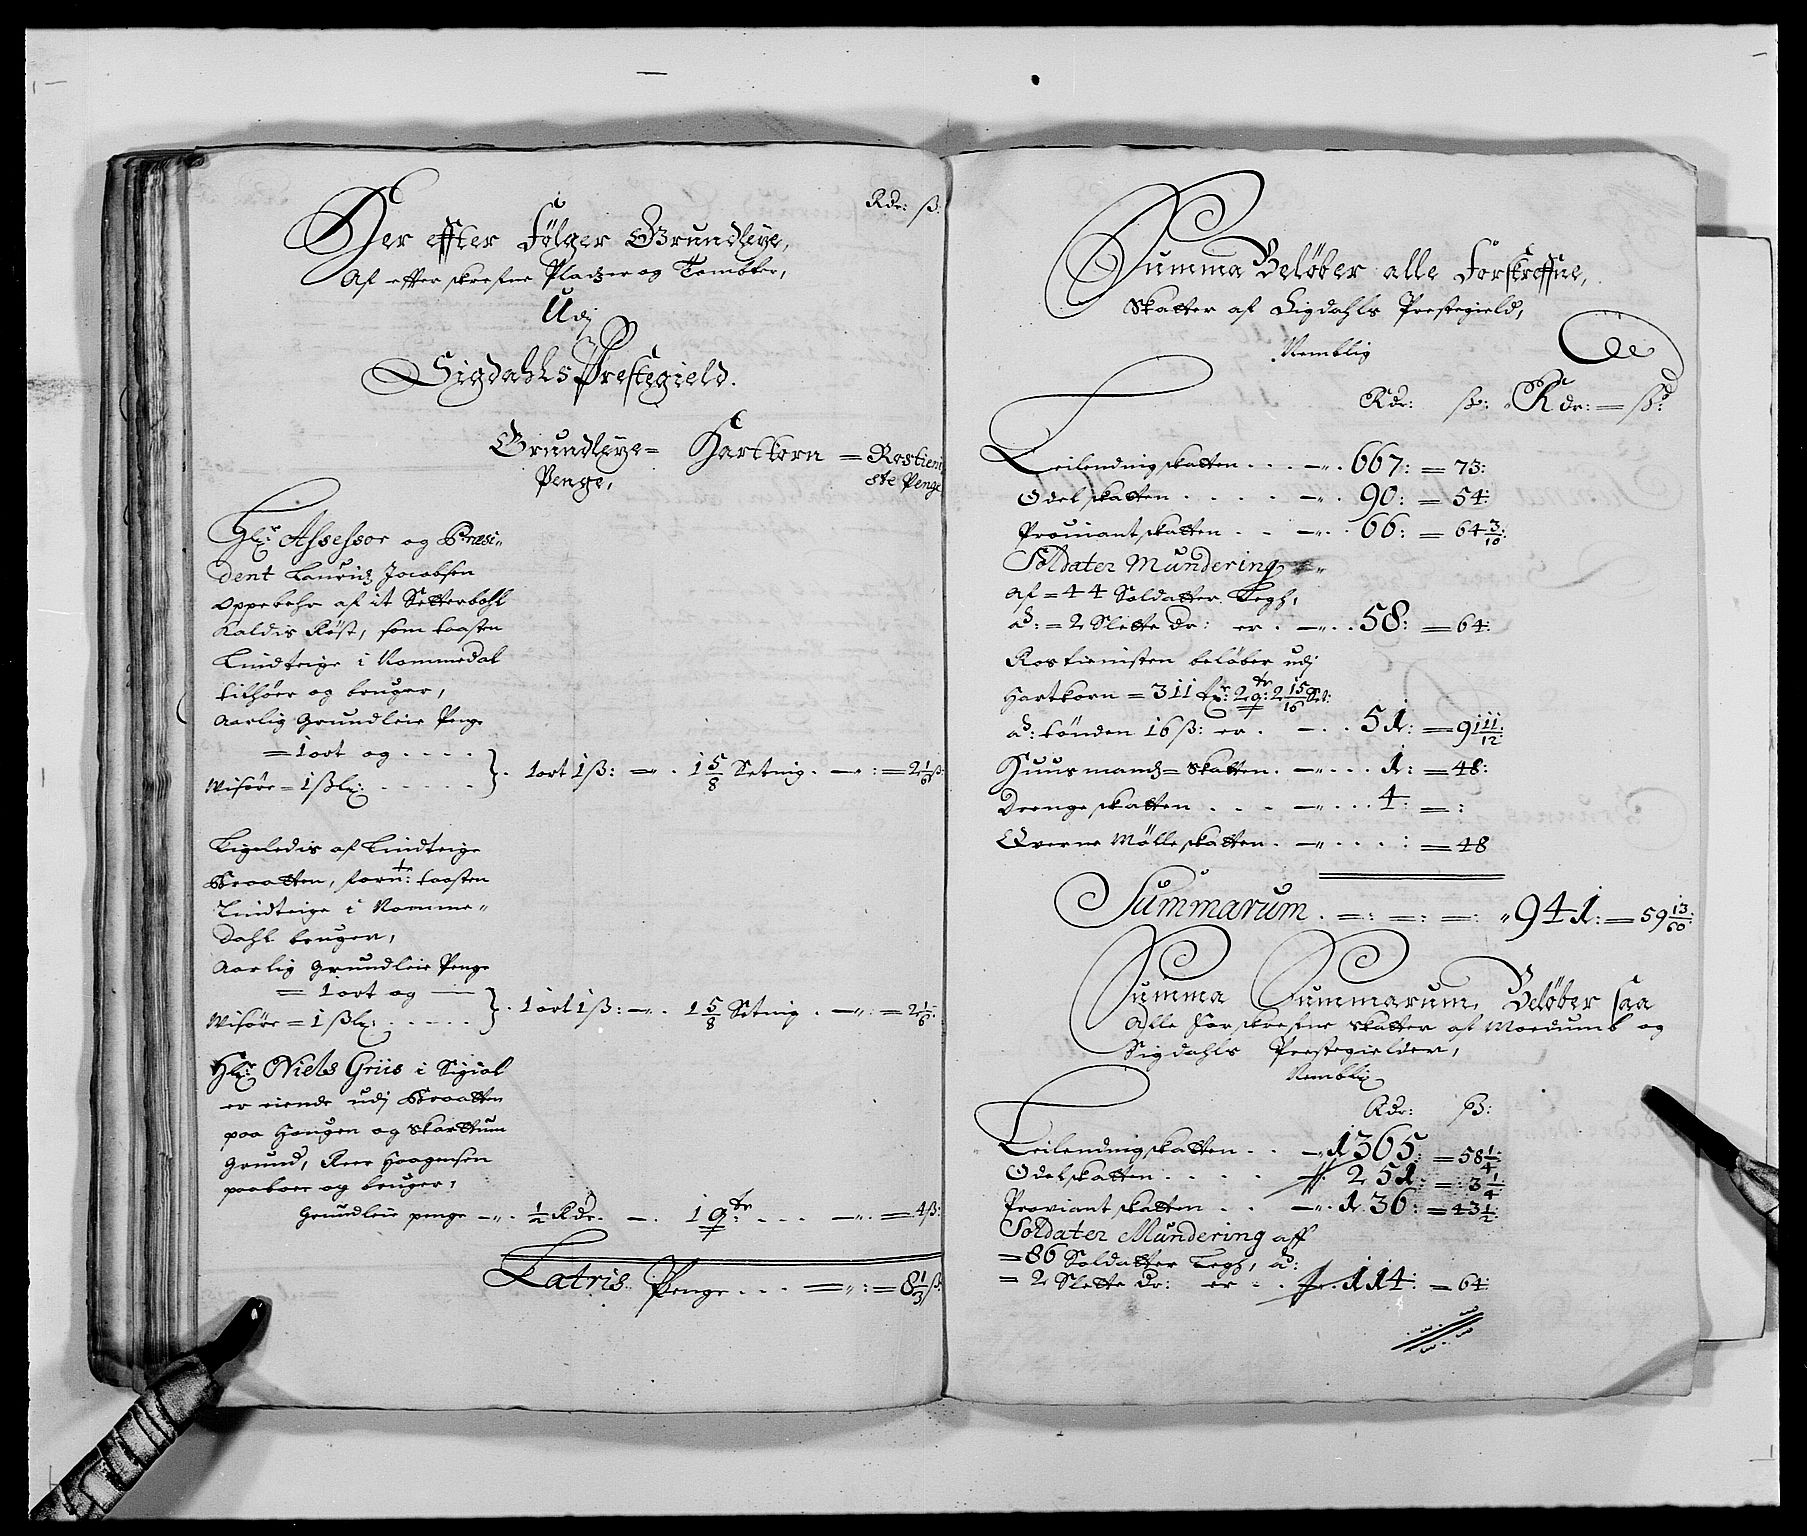 Rdr: ß:
Her effter Følger Grundleye,
Af efter skrefne Pladzer og Tombter,
Udj
Sigdahls Prestegield.
Grundleye= Hartkorn = Rostieni
Penge, ste Penge
Hr: Assessor og Præsi=
dent Lauridz Jacobsen
oppebehr af it Setterbohl
Kaldis Røst, som Toesten
Lindteige i Nommedal
tilhører og bruger,
Aarlig Grundleie Penge
= 1 ort og . . . .
Wisøre = 1 ßl: . . . . . }. 1 ort 1 ß: =. 1 5/8 Setnig. —: = 2 1/6 ß:
Ligeledis af Lindteige
Braatten, forn: Toosten
Lindteige i Nomme=
dahl bruger,
Aarlig Grundleie Penge
= 1 ort og —
Wisøre = 1 ßl: . . . . . }. 1 ort 1 ß: —. 1 5/8 Setnig . —: = 2 1/6:
Hr: Niels Griis i Sigdal
er eiende udj Braatten
paa Haugen og Skartum
Grund, Reer Haagensen
paaboer og bruger,
Grundleie penge —. 1/2 Rdr. —. 1 qtr: . . . —: = 4 ß:
Latris Penge . . . =: = 8 1/3 ß:
Summa Beløber alle Forskreffne,
Skatter af Sigdahls Prestegield,
Nemblig
Rdr: ß: Rdr: = ß:
Leilendings skatten . . . —. 667: = 73:
Odelskatten . . . . —. 90: = 54:
Prouiant skatten . . —. 66: = 64 3/10:
Soldater Mundering
af = 44 Soldatter Legh,
a: = 2 Slette dr: er . —. . 58: = 64:
Rostienisten beløber udj
Hartkorn = 311 tr: 2 qtr: 2 15/16 Set:
a: tønden 16 ß: er . —. . 51: = 91 11/12:
Huusmandz= Skatten. —. . . 1: = 48:
Drengeskatten . . . —. . . 4: = :
Qverne Mølleskatten . —. . . : = 48
Summarum . =: =: =: 941: = 59 13/60:
Summa Summarum, Beløber saa
Alle forskrefne Skatter af Moedumb og
Sigdahls Prestegielder,
Nemblig
Rdr: ß:
Leilendings skatten . . —. 1365: = 58 1/4:
Odelskatten . . . . 251: = 3 1/4
Proviant skatten . . —. 136: = 43 1/2
Soldater Mundering aff
= 86 Soldatter Legh, a:
= 2 Slette dr: er . . 114: = 64: